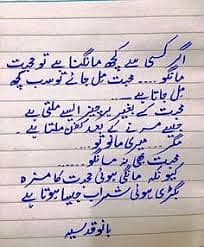 اگر کسی سے کچھ مانگنا ہے تو محبت
مانگو.... محبت مل جائے تو سب کچھ
مل جاتا ہے....
محبت کے بغیر ہر چیز ایسے ملتی ہے
جیسے مرنے کے بعد کفن ملتا ہے..
مگر... میری مانو تو
محبت بھی نہ مانگو....
کیونکہ مانگی ہوئی محبت کا مزہ
بگڑی ہوئی شراب جیسا ہوتا ہے
بانو قدسیہ